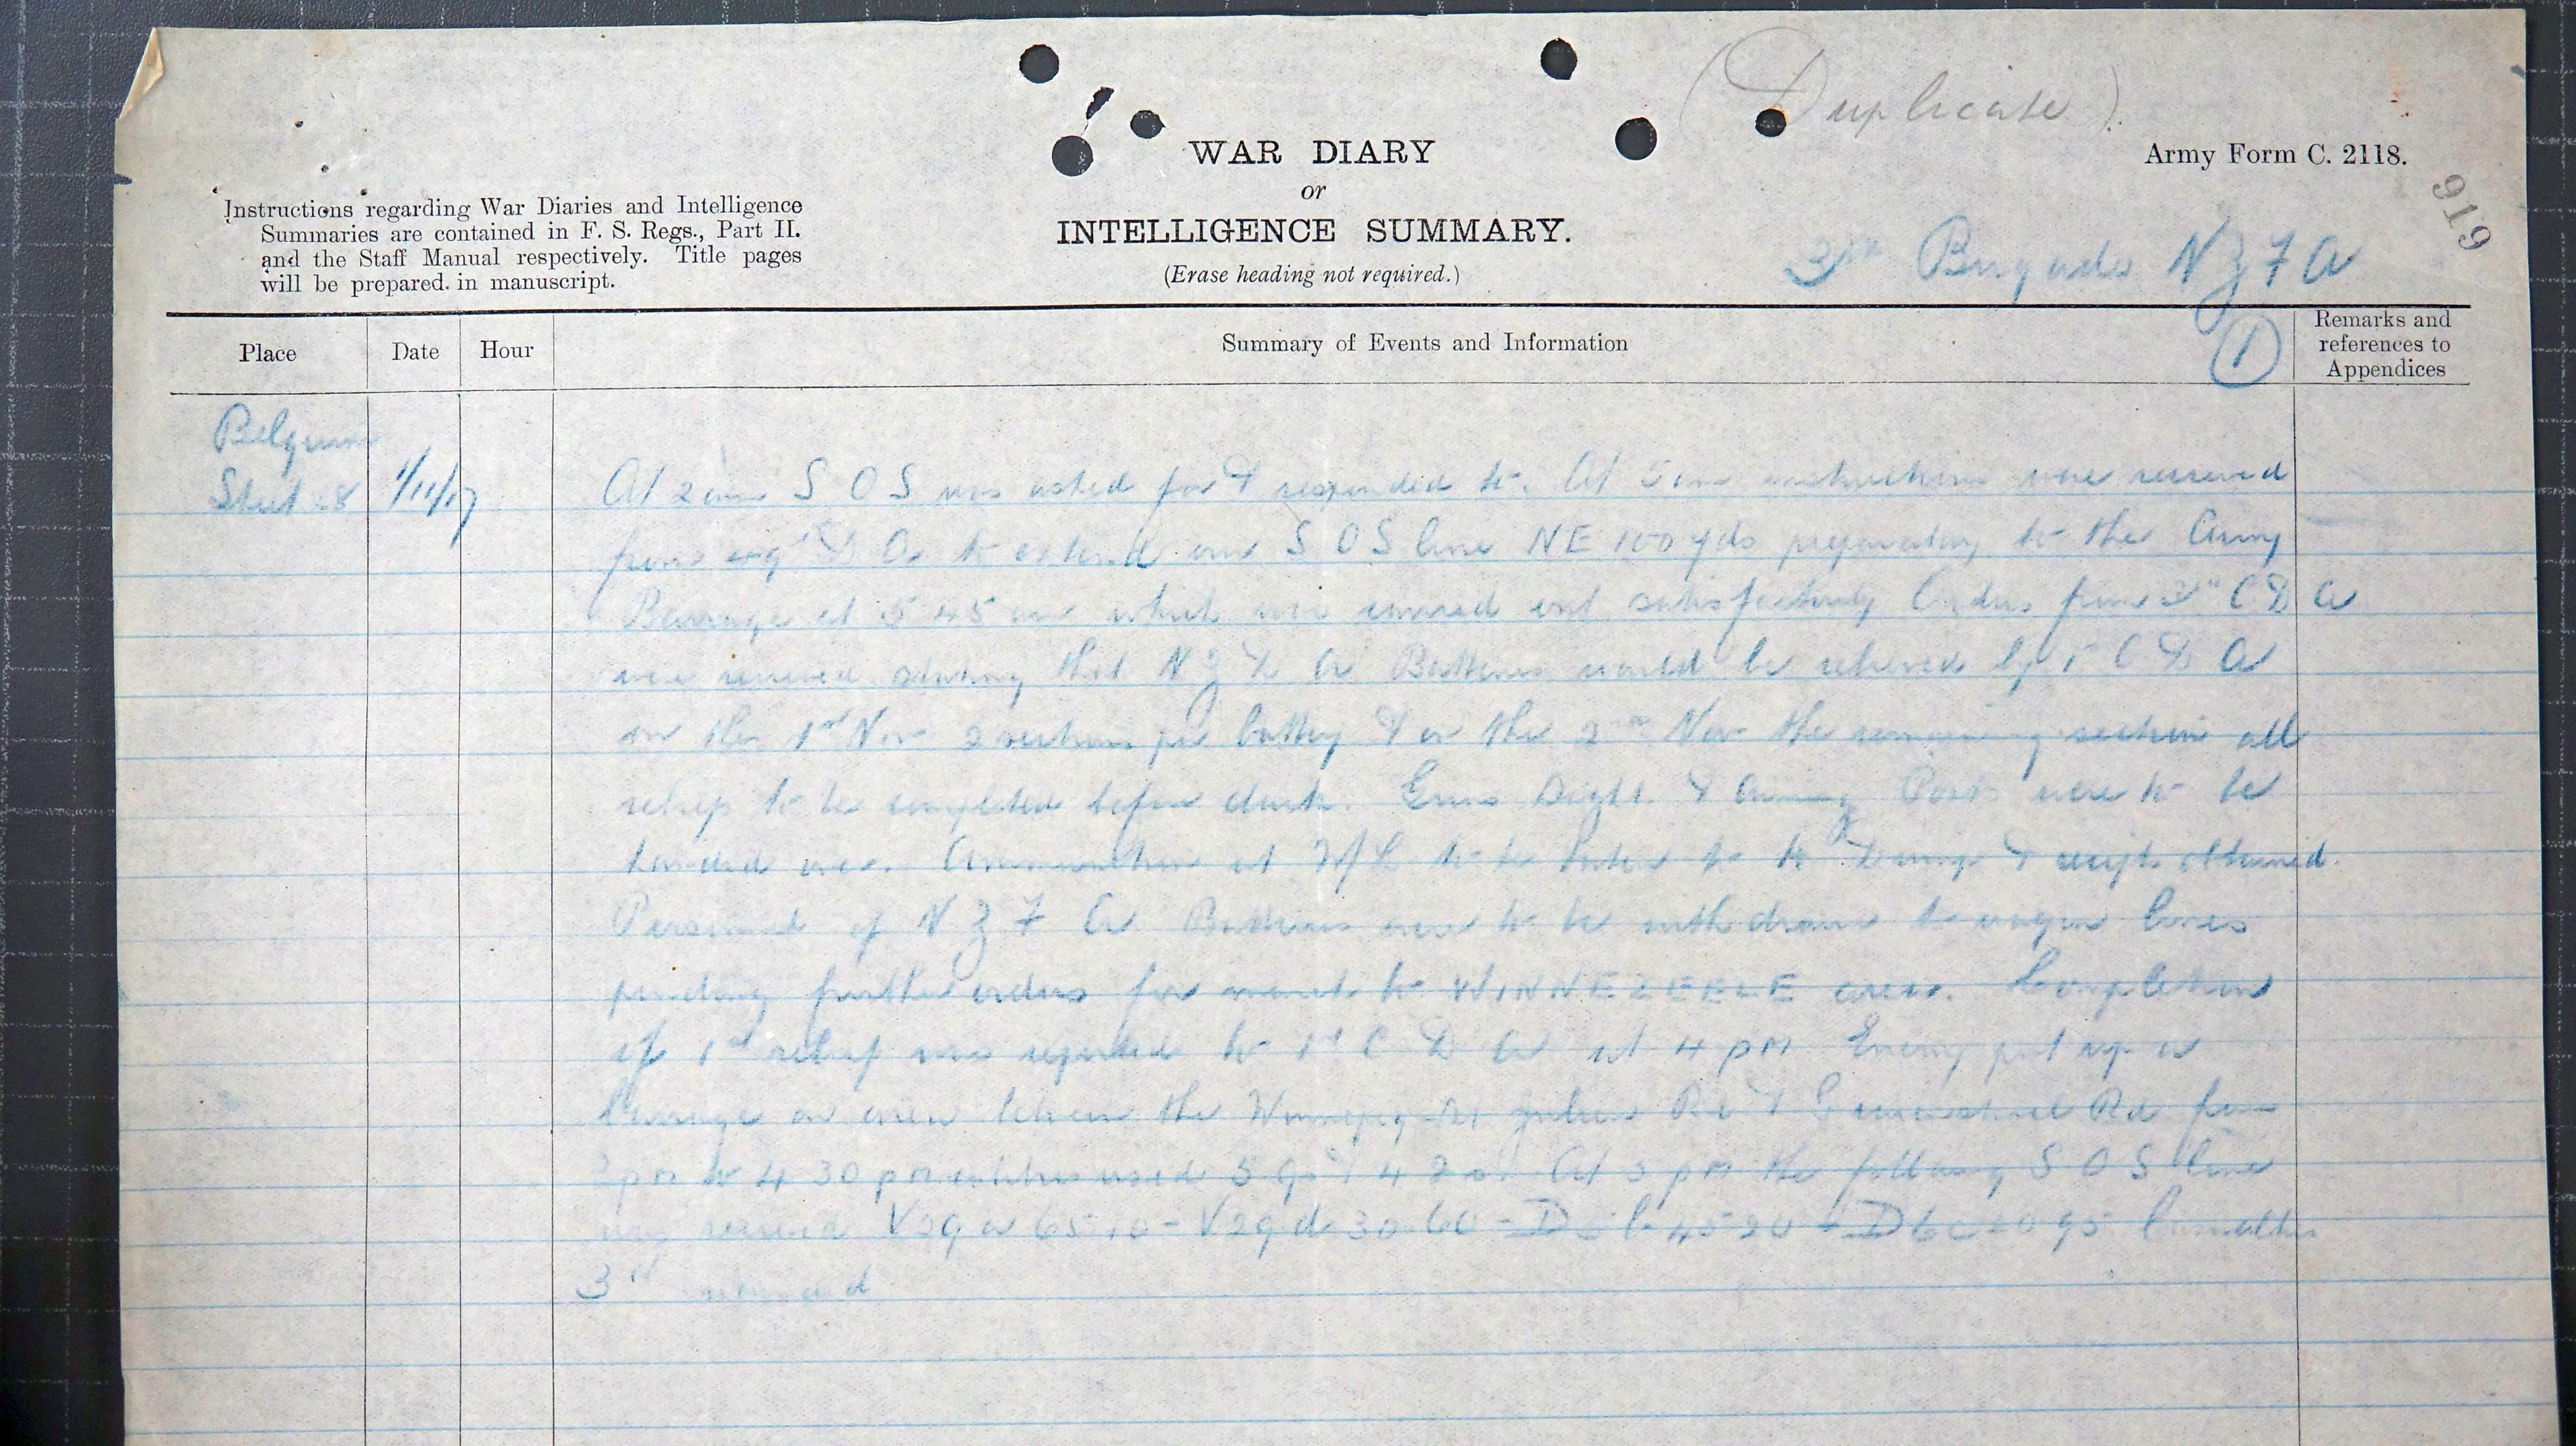 (Duplicate)
WAR DIARY
or
INTELLIGENCE SUMMARY.
(Erase heading not required.)
Army Form C. 2118.
919
Instructions regarding War Diaries and Intelligence
Summaries are contained in F. S. Regs., Part II.
and the Staff Manual respectively. Title pages
will be prepared in manuscript.
3rd Brigade N Z F A
1
Place
Date
Hour
Summary of Events and Information
Remarks and
references to
Appendices
Belgium
Sheet 28
1/11/17
At 2 am S O S was asked for & responded to. At 5 am instructions were received
from 49th D A to extend our S O S line NE 100 yds preparatory to the Army
Barrage at 5 45 am which was carried out satisfactorily Orders from C D A
were received stating that N Z F A Batteries would be relieved by 1 C D A
on the 1st Nov 2 sections per battery & on the 2nd Nov the remaining section all
reliefs to be completed before dark. Guns Sight & Aiming Posts were to be
handed over. Ammunition at W/L to be taken to Dump & receipts obtained.
Personnel of N Z F A Batteries were to be withdrawn to wagon lines
pending further orders for march to WINNEZEELE area. Completion
of 1st relief was reported to 1st C D A at 4 pm Enemy put up a
barrage on area between the Winnipeg - St Julien Rd & Rd from
pm to 4 30 pm calibres used 5 9s & 4 2s. At 5 pm the following S O S line
was received V29 a 65 10 - V29 d 30 60 - D 5 b 45 20 - D6 c 95
3rd